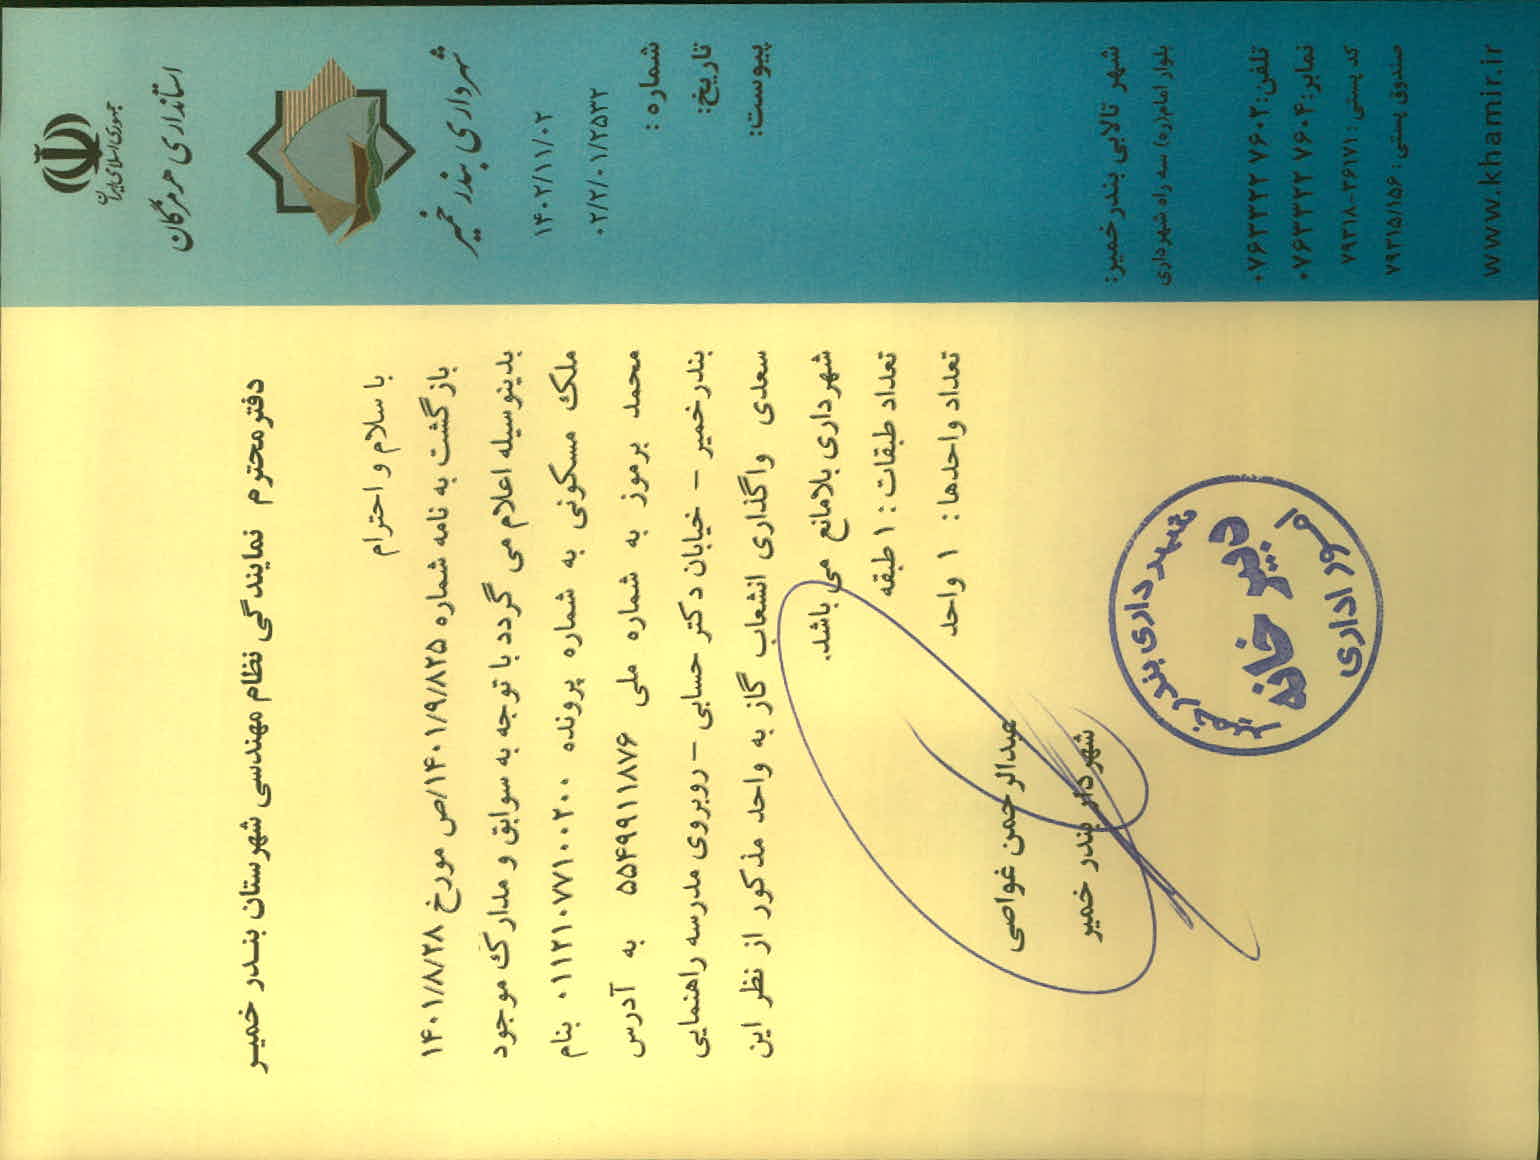 جمهوری اسلامی ایران
استانداری هرمزگان
شهرداری بندر خمیر
۱۴۰۲/۱۱/۰۲
۰۲/۲/۰۱/۲۵۳۲
شماره :
تاریخ:
پیوست:
شهر تالابی بندرخمیر:
بلوار امام(ره) سه راه شهرداری
تلفن: ۰۷۶۳۳۲۲۷۶۰۲
نمابر: ۰۷۶۳۳۲۲۷۶۰۴
کد پستی: ۷۹۳۱۸-۳۶۱۷۱
صندوق پستی: ۷۹۳۱۵/۱۵۶
www.khamir.ir
دفتر محترم نمایندگی نظام مهندسی شهرستان بندر خمیر
با سلام و احترام
بازگشت به نامه شماره ۱۴۰۱/۹/۸۲۵/ص مورخ ۱۴۰۱/۸/۲۸
بدینوسیله اعلام می گردد با توجه به سوابق و مدارک موجود
ملک مسکونی به شماره پرونده ۰۱۱۲۱۰۷۷۱۰۰۲۰۰ بنام
محمد برموز به شماره ملی ۵۵۴۹۹۱۱۸۷۶ به آدرس
بندرخمیر - خیابان دکتر حسابی - روبروی مدرسه راهنمایی
سعدی واگذاری انشعاب گاز به واحد مذکور از نظر این
شهرداری بلامانع می باشد.
تعداد طبقات : ۱ طبقه
تعداد واحدها : ۱ واحد
عبدالرحمن غواصی
شهردار بندر خمیر
شهرداری بندر خمیر
دبیرخانه
امور اداری